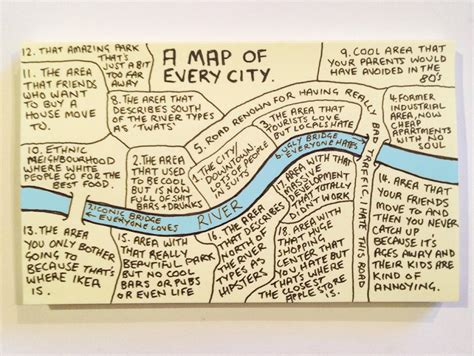 A MAP OF
EVERY CITY.
12. THAT AMAZING PARK
THAT'S
JUST A BIT
TOO FAR
AWAY
11. THE AREA
THAT FRIENDS
WHO WANT
TO BUY A
HOUSE MOVE
TO.
8. THE AREA THAT
DESCRIBES SOUTH
OF THE RIVER TYPES
AS 'TWATS'
9. COOL AREA THAT
YOUR PARENTS
WOULD HAVE
AVOIDED IN THE
80'S
5. ROAD RENOWN FOR HAVING REALLY BAD TRAFFIC. I HATE THIS ROAD
4. FORMER
INDUSTRIAL
AREA, NOW
CHEAP
APARTMENTS
WITH NO
SOUL
3. THE AREA THAT
TOURISTS LOVE
BUT LOCALS HATE
10. ETHNIC
NEIGHBOURHOOD
WHERE WHITE
PEOPLE GO FOR THE
BEST FOOD.
2. THE AREA
THAT USED
TO BE COOL
BUT IS NOW
FULL OF SHIT
BARS + DRUNKS
1. THE CITY
DOWNTOWN,
LOTS OF PEOPLE
IN SUITS
6. UGLY BRIDGE
EVERYONE HATES
7. ICONIC BRIDGE
← EVERYONE LOVES
RIVER
13. THE AREA
YOU ONLY BOTHER
GOING TO
BECAUSE THAT'S
WHERE IKEA
IS.
15. AREA WITH
THAT REALLY
BEAUTIFUL PARK
BUT NO COOL
BARS OR PUBS
OR EVEN LIFE
16. THE AREA
THAT DESCRIBES
NORTH OF
THE RIVER
TYPES AS
HIPSTERS
17. AREA WITH THAT
MASSIVE
DEVELOPMENT
THAT TOTALLY
DIDN'T WORK
18. AREA WITH
THAT HUGE
SHOPPING
CENTER THAT
YOU HATE BUT
THAT'S WHERE
THE CLOSEST
APPLE STORE
IS.
14. AREA THAT
YOUR FRIENDS
MOVE TO AND
THEN YOU NEVER
CATCH UP
BECAUSE IT'S
AGES AWAY AND
THEIR KIDS ARE
KIND OF
ANNOYING.